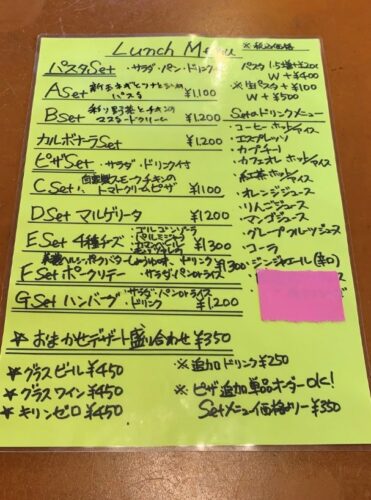 Lunch Menu ※税込価格
パスタSet ・サラダ・パン・ドリンク
ASet
パスタ ¥1,100
BSet 彩り野菜とチキンの
マスタードクリーム ¥1,200
カルボナーラSet ¥1,200
ピザSet ・サラダ・ドリンク付
CSet 自家製スモークチキンの
トマトクリームピザ ¥1100
DSet マルゲリータ ¥1200
ESet 4種チーズ ・ゴルゴンゾーラ ¥1300
FSet ポークソテー ・サラダ・パンorライス ・ドリンク ¥1300
GSet ハンバーグ ・サラダ・パンorライス
・ドリンク ¥1,200
☆ おまかせデザート盛り合わせ ¥350
★ グラスビール ¥450
★ グラスワイン ¥450
★ キリンゼロ ¥450
パスタ 1.5増 +¥200
W +¥400
※生パスタ +¥100
W +¥500
Setのドリンクメニュー
・コーヒー ホットorアイス
・エスプレッソ
・カプチーノ
・カフェオレ ホットorアイス
・紅茶 ホットorアイス
・オレンジジュース
・りんごジュース
・マンゴジュース
・グレープフルーツジュース
・コーラ
・ジンジャエール(辛口)
※追加ドリンク ¥250
※ピザ追加単品オーダーOK!
Setメニュー価格より-¥350